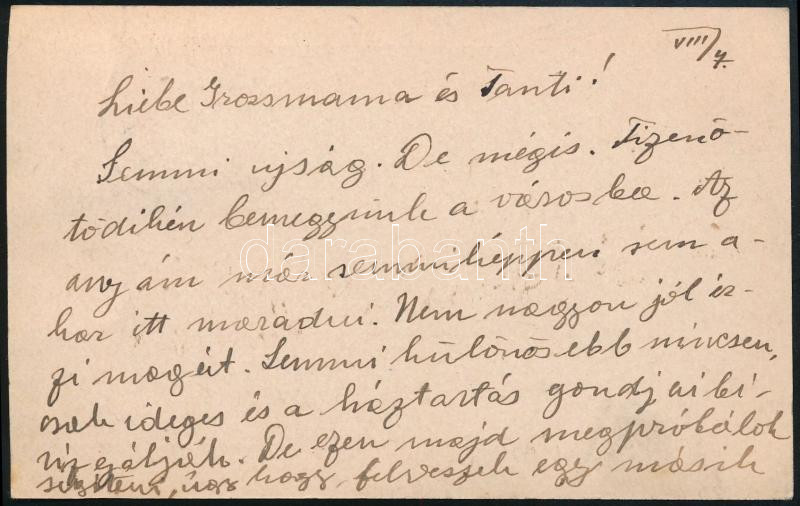 VIII/7.
Liebe Grossmama és Tanti!
Semmi ujság. De mégis. Tizenö-
tödikén bemegyünk a városba. Az
anyám már semmiképpen sem a-
kar itt maradni. Nem nagyon jól ér-
zi magát. Semmi különösebb nincsen,
csak ideges és a háztartás gondjai ki-
vizsgálják. De ezen majd megpróbálok
segíteni, úgy hogy felveszek egy másik
darabanth